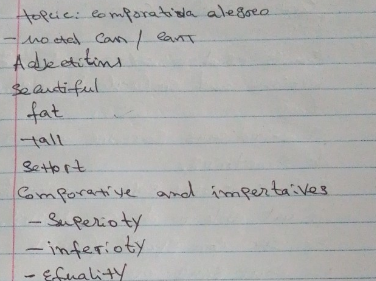 topcic: comporativda alegoeo
- modal can / can't
Adjectitins
Seautiful
fat
tall
Settort
Comporative and impertaives
- Superioty
- inferioty
- Efuality